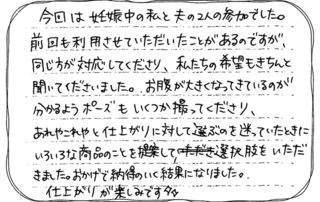 今回は妊娠中の私と夫の2人の参加でした。
前回も利用させていただいたことがあるのですが、
同じ方が対応してくださり、私たちの希望もきちんと
聞いてくださいました。お腹が大きくなってきているのが
分かるようポーズもいくつか撮ってくださり、
あれやこれやと仕上がりに対して選ぶのを迷っていたときに
いろいろな商品のことを提案して選択肢をいただ
きました。おかげで納得のいく結果になりました。
仕上がりが楽しみです